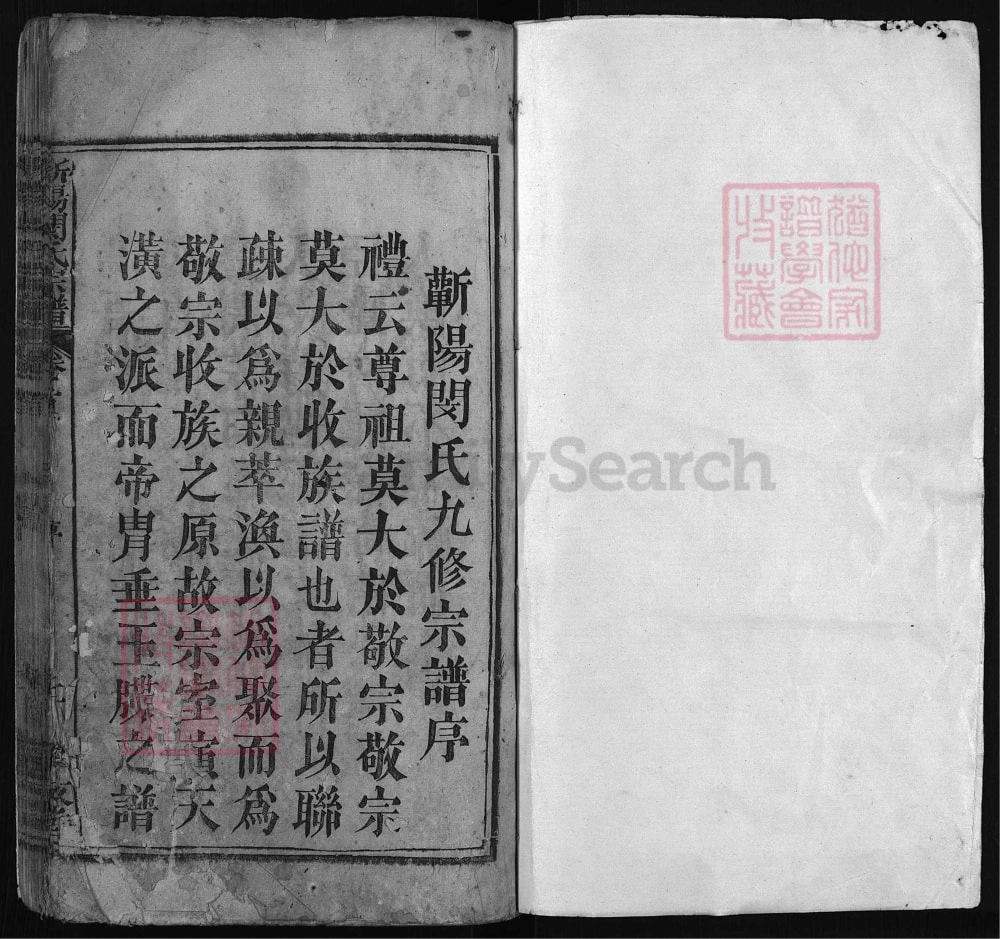 蘄陽閔氏九修宗譜序
禮云尊祖莫大於敬宗敬宗
莫大於收族譜也者所以聯
疎以爲親萃渙以爲聚而爲
敬宗收族之原故宗室演天
潢之派而帝冑垂玉牒之譜
蘄陽閔氏宗譜
卷首
譜學會
收藏
Search